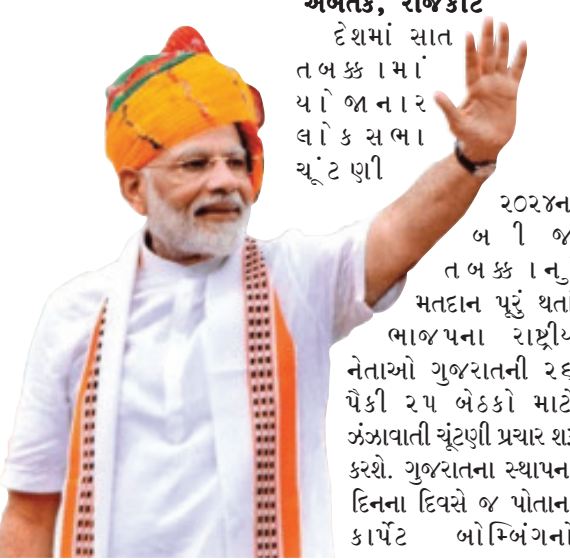 અબતક, રાજકોટ
દેશમાં સાત
તબક્કામાં
યોજાનાર
લોકસભા
ચૂંટણી
૨૦૨૪ન
બીજ
તબક્કાનુ
મતદાન પૂરું થતાં
ભાજપના રાષ્ટ્રીય
નેતાઓ ગુજરાતની ૨૬
પૈકી ૨૫ બેઠકો માટે
ઝંઝાવાતી ચૂંટણી પ્રચાર શરૂ
કરશે. ગુજરાતના સ્થાપન
દિનના દિવસે જ પોતાન
કાર્પેટ બોમ્બિંગનો